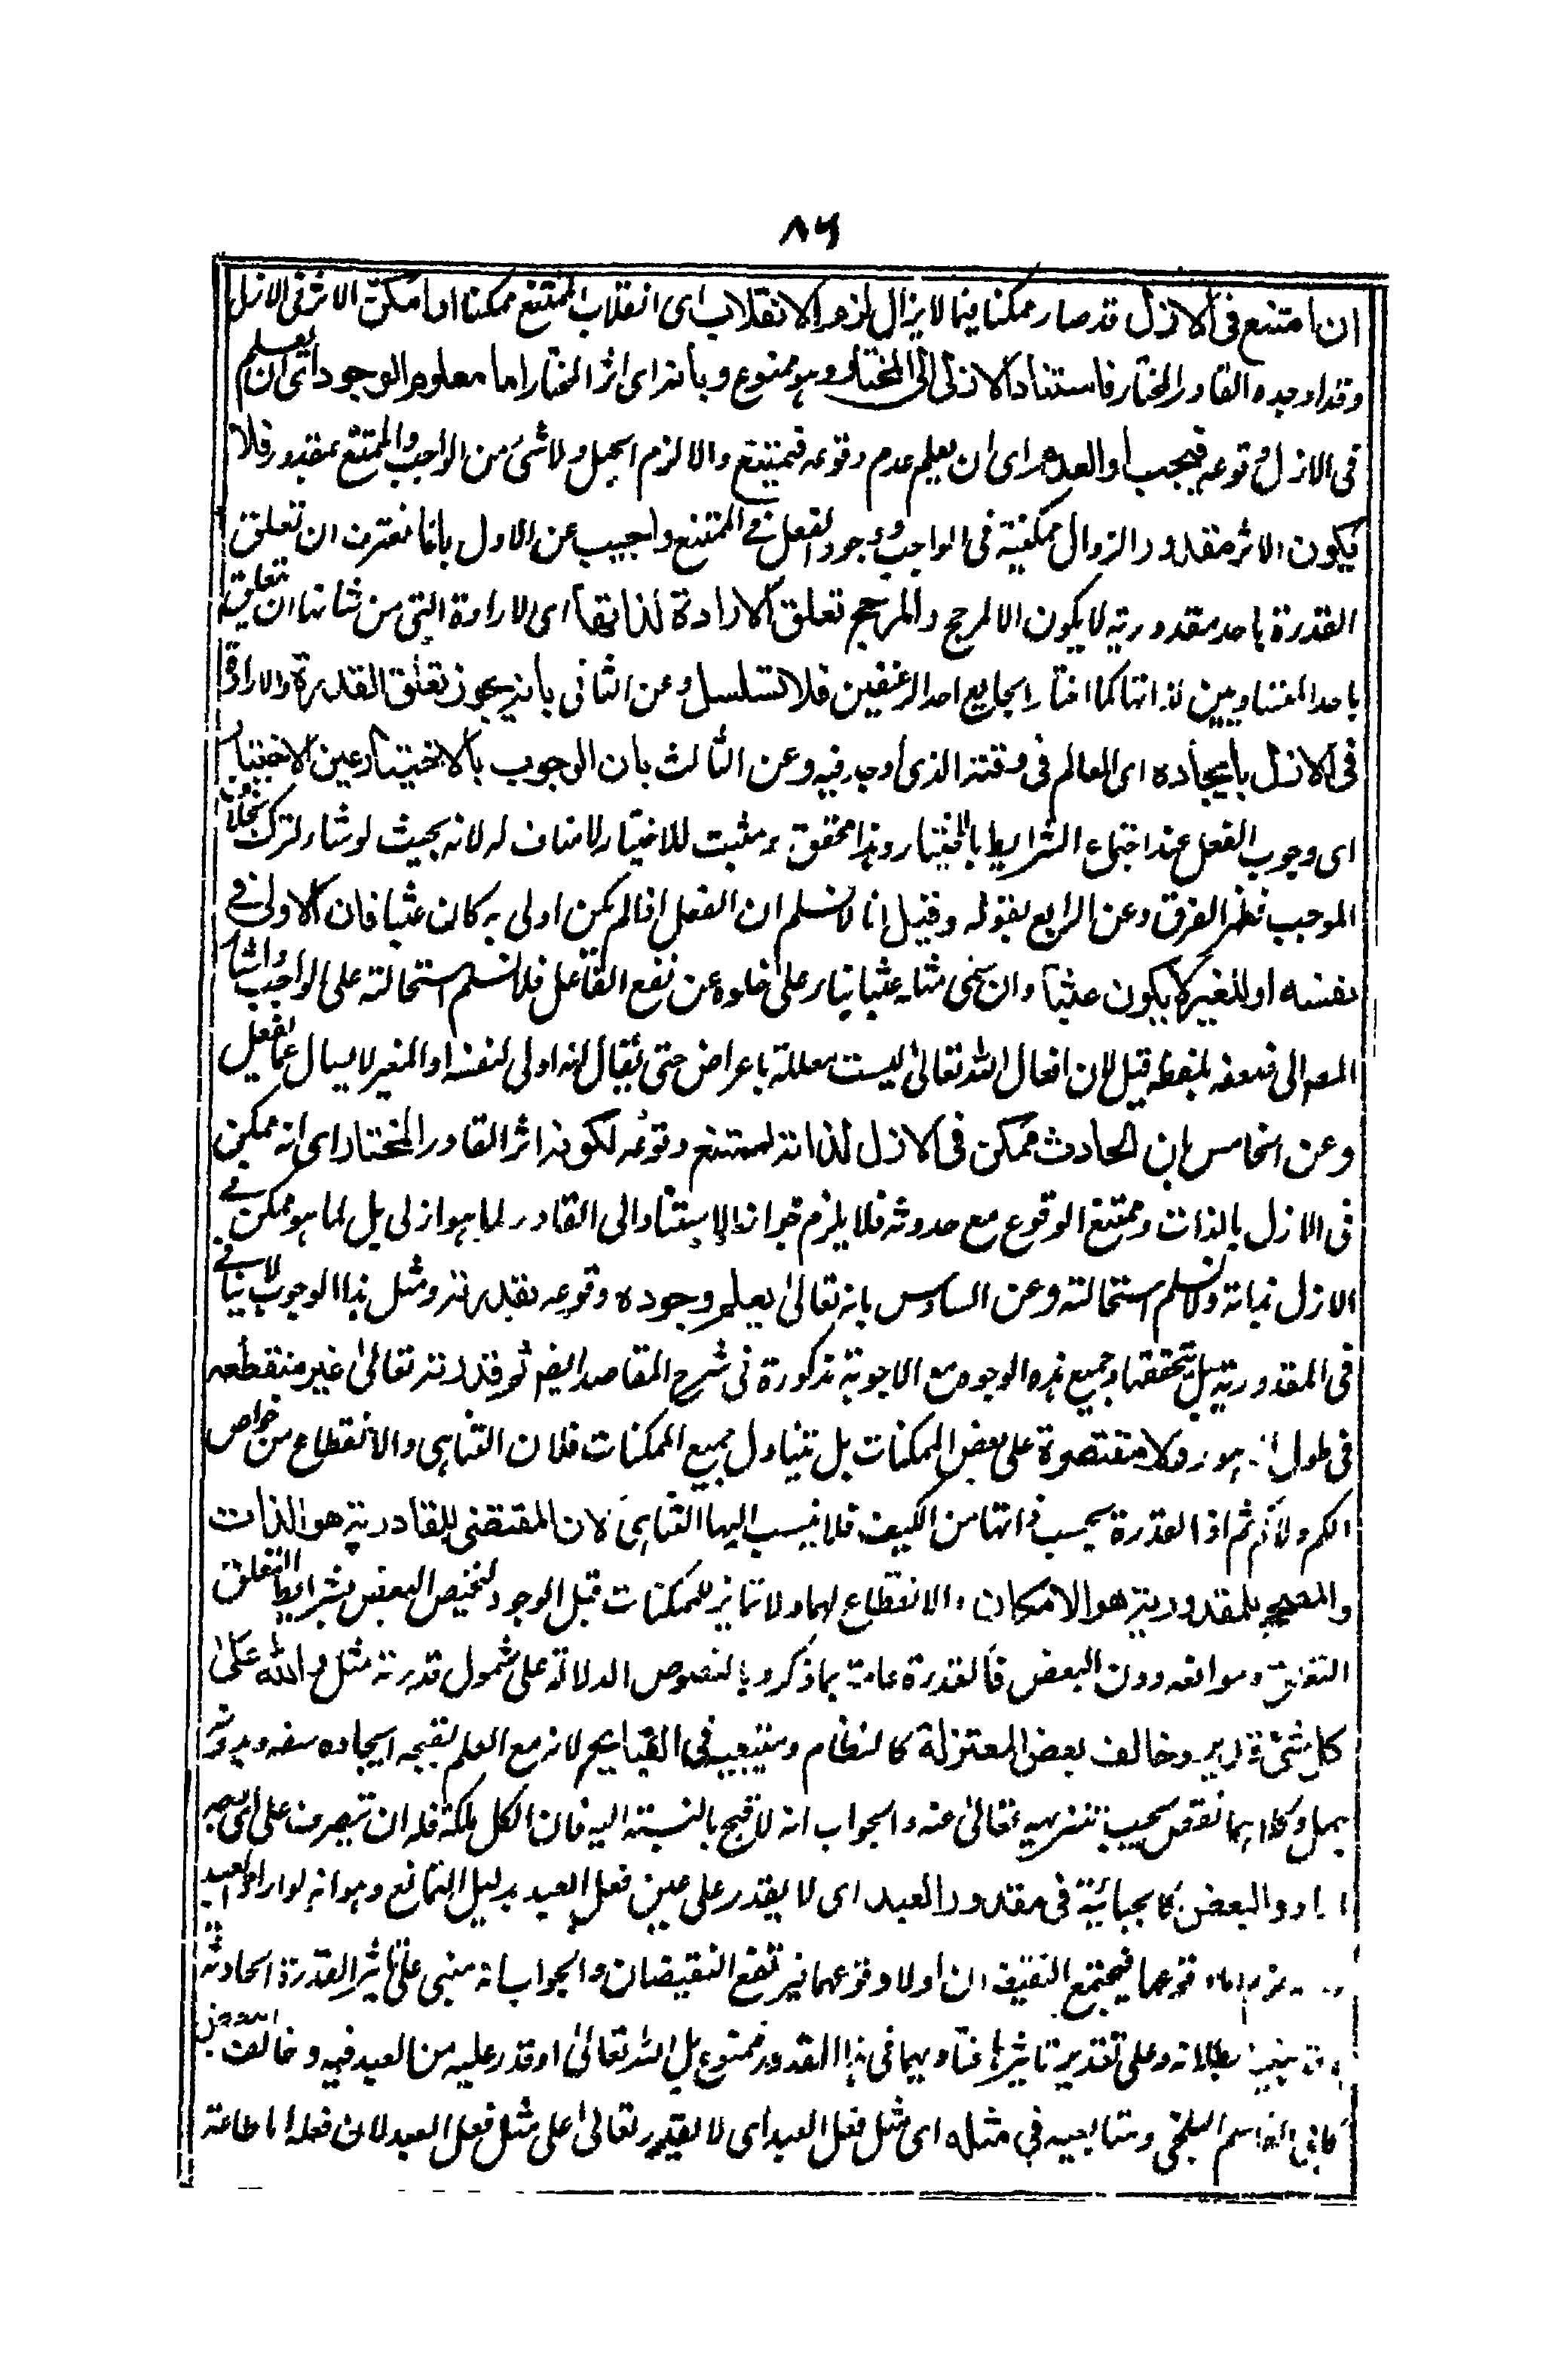 ٨٦
ان امتنع فى الازل قد صار ممكنا فيما لا يزال لزم الانقلاب اى انقلاب الممتنع ممكنا او امكن الاثر فى الازل
وقد اوجده القادر المختار فاستناد الازلى الى المختار وهو ممنوع وبانه اى اثر المختار اما معلوم الوجود اى ان يعلم
فى الازل وقوعه فيجب او العدم اى ان يعلم عدم وقوعه فيمتنع والا لزم الجهل ولا شئ من الواجب والممتنع بمقدور فلا
يكون الاثر مقدورا لزوال مكنية فى الواجب ووجود الفعل فى الممتنع واجيب عن الاول بانا نعترف ان تعلق
القدرة باحد مقدوريه لا يكون الا لمرجح والمرجح تعلق الارادة لذاتها اى الارادة التى من شانها ان تتعلق
باحد المتساويين لذاتها كما اختار الجايع احد الرغيفين فلا تسلسل وعن الثانى بانه يجوز تعلق القدرة والارادة
فى الازل بايجاده اى العالم فى وقته الذى اوجد فيه وعن الثالث بان الوجوب بالاختيار عين الاختيار
اى وجوب الفعل عند اجتماع الشرايط بالاختيار وهذا محقق ومثبت للاختيار لا مناف له لانه بحيث لو شاء لترك بخلاف
الموجب فظهر الفرق وعن الرابع بقوله وقيل انا لا نسلم ان الفعل اذا لم يكن اولى به كان عبثا فان الاولى فى
نفسه او للغير لا يكون عبثا وان سمى مثله عبثا بناء على خلوه عن نفع الفاعل فلا نسلم استحالته على الواجب واشار
المصـ الى ضعفه بلفظ قيل لان افعال الله تعالى ليست معللة باعراض حتى يقال انه اولى لنفسه او الغير لا يسال عما يفعل
وعن الخامس بان الحادث ممكن فى الازل لذاته ممتنع وقوعه لكونه اثر القادر المختار اى انه ممكن
فى الازل بالذات وممتنع الوقوع مع حدوثه فلا يلزم جواز الاستناد الى القادر لما هو ازلى بل لما هو ممكن فى
الازل بذاته ولا نسلم استحالته وعن السادس بانه تعالى يعلم وجوده وقوعه بقدرته ومثل هذا الوجوب لا ينافى
فى المقدورية بل تحققها وجميع هذه الوجوه مع الاجوبة مذكورة فى شرح المقاصد ايضا ثم قدرته تعالى غير منقطعة
فى طول ولا مقتصرة على بعض الممكنات بل تتناول جميع الممكنات فلان التناهى والانقطاع من خواص
الكم ولا كم ثم اذ القدرة بحسب ذاتها من الكيف فلا ينسب اليها التناهى لان المقتضى للقادرية هو الذات
والمصحح للمقدورية هو الامكان والانقطاع لهما ولا تمايز للممكنات قبل الوجود لتخصيص البعض بشرايط التعلق
وموانعه دون البعض فالقدرة عامة بما ذكر وبالنصوص الدلالة على شمول قدرته مثل والله على
كل شئ قدير وخالف بعض المعتزلة كالنظام ومتبعيه فى القبايح لانه مع العلم بقبحه ايجاده سفه وبدونه
جهل وكلاهما نقص يجب تنزيهه تعالى عنه والجواب انه لا قبح بالنسبة اليه فان الكل ملكه فله ان يتصرف على اى
والبعض كالجبائية فى مقدور العبد اى لا يقدر على عين فعل العبد بدليل التمانع وهو انه لو اراد العبد
فيجتمع النقيضان اولا وقوعهما فيرتفع النقيضان والجواب انه مبنى على تاثير القدرة الحادثة
بطلانه وعلى تقدير تاثيرها فتساويهما فى هذا المقدور ممنوع بل الله تعالى اقدر عليه من العبد فيه وخالف
البلخى ومتابعيه فى مثله اى مثل فعل العبد اى لا يقدر تعالى على مثل فعل العبد لان فعله اما طاعة